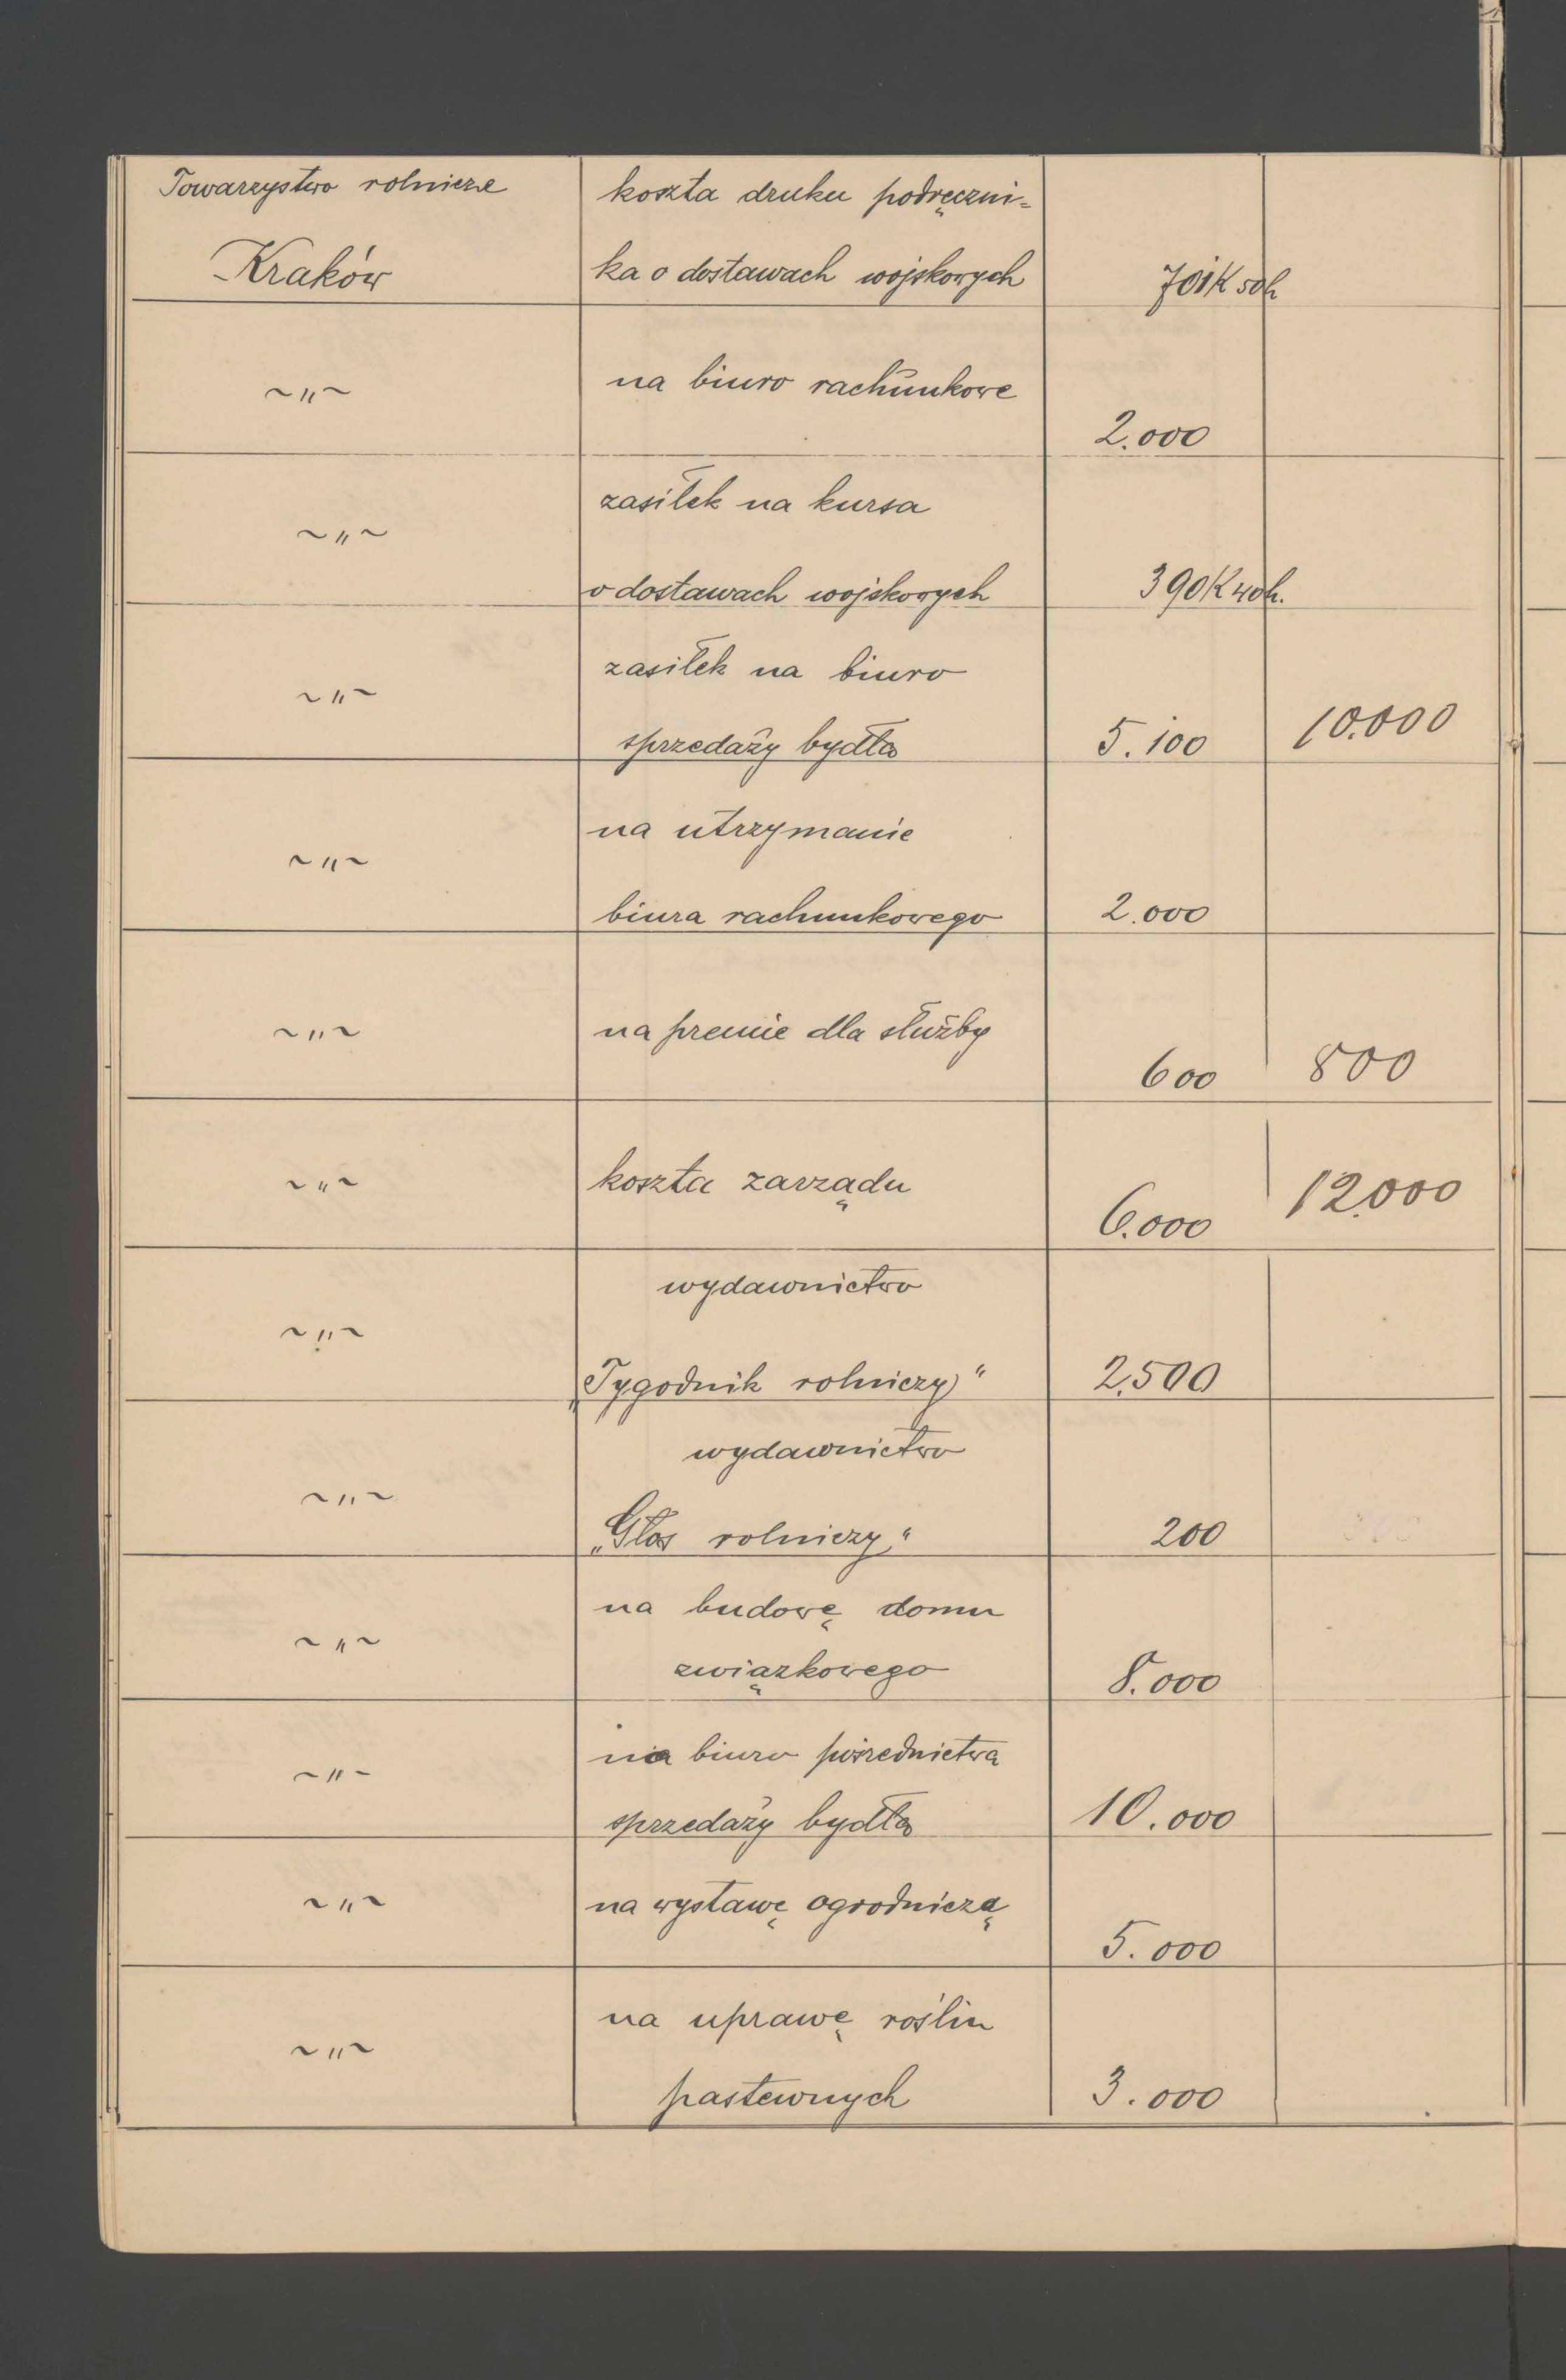 Towarzystwo rolnicze koszta druku podręczni=
Kraków ka o dostawach wojskowych 701K 50h
~"~ na biuro rachunkowe
2.000
zasiłek na kursa
~"~
o dostawach wojskowych 390K 40h.
zasiłek na biuro
~"~
sprzedaży bydła 5.100 10.000
na utrzymanie
~"~
biura rachunkowego 2.000
~"~ na premie dla służby
600 800
~"~ koszta zarządu
6.000 12.000
wydawnictwo
~"~
„Tygodnik rolniczy" 2.500
wydawnictwo
~"~
„Głos rolniczy" 200
na budowę domu
~"~
związkowego 8.000
na biuro pośrednictwa
~"~
sprzedaży bydła 10.000
~"~ na wystawę ogrodniczą
5.000
na uprawę roślin
~"~
pastewnych 3.000